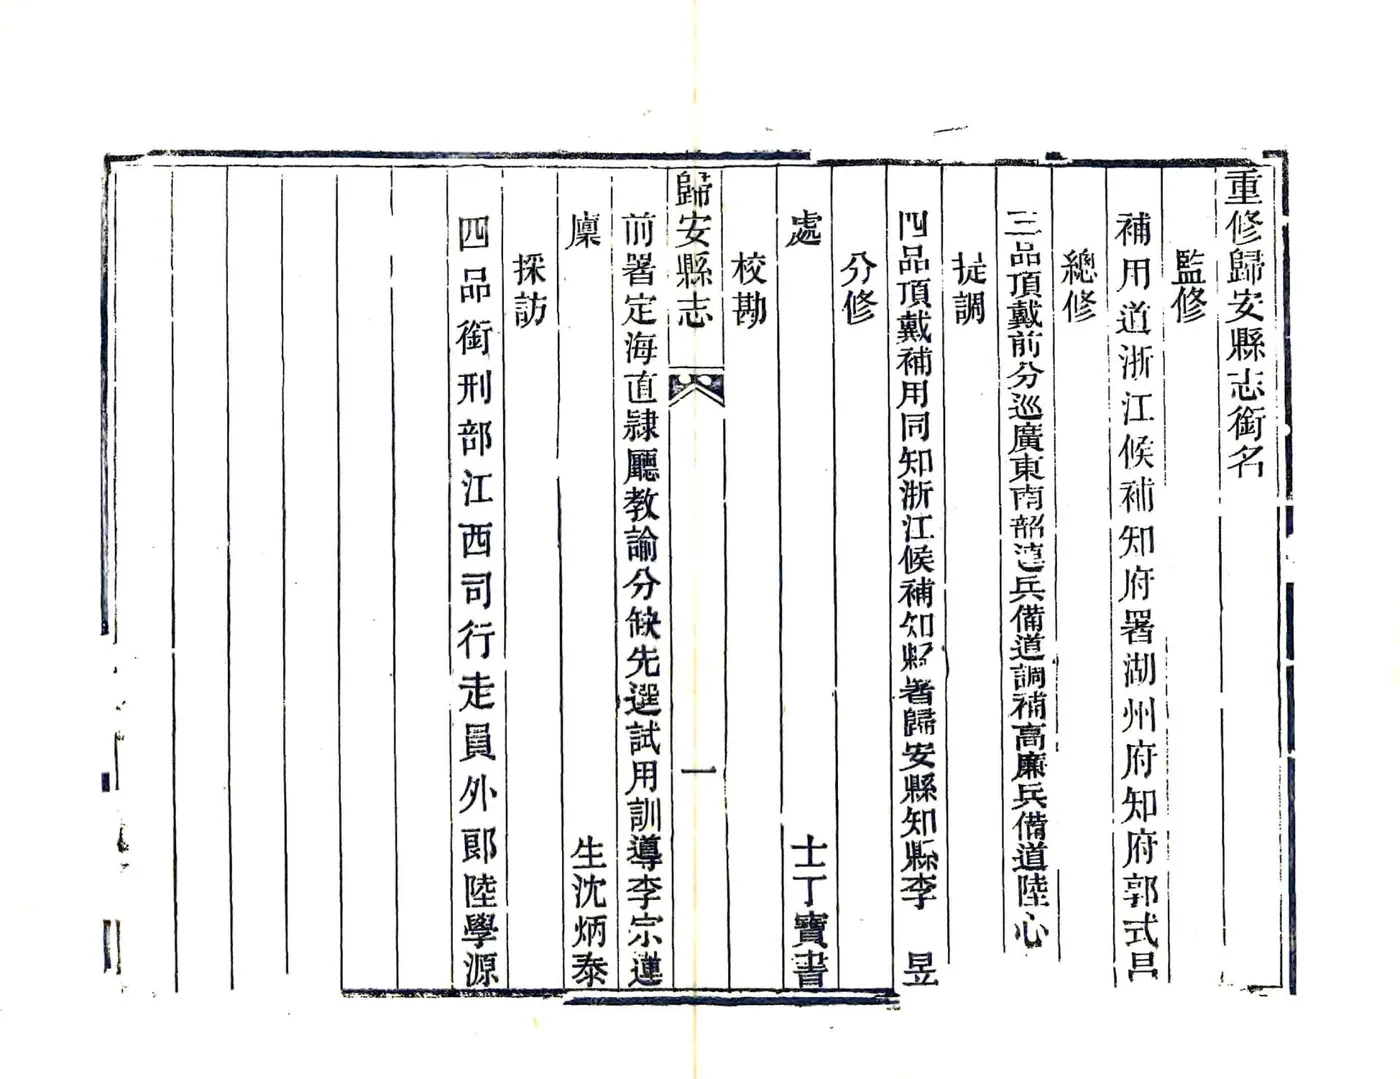 重修歸安縣志銜名
監修
補用道浙江候補知府署湖州府知府郭式昌
總修
三品頂戴前分巡廣東南韶連兵備道調補高廉兵備道陸心
提調
四品頂戴補用同知浙江候補知縣署歸安縣知縣李 昱
分修
處 士丁寶書
校勘
歸安縣志 一
前署定海直隸廳教諭分缺先選試用訓導李宗蓮
廩 生沈炳泰
採訪
四品銜刑部江西司行走員外郎陸學源